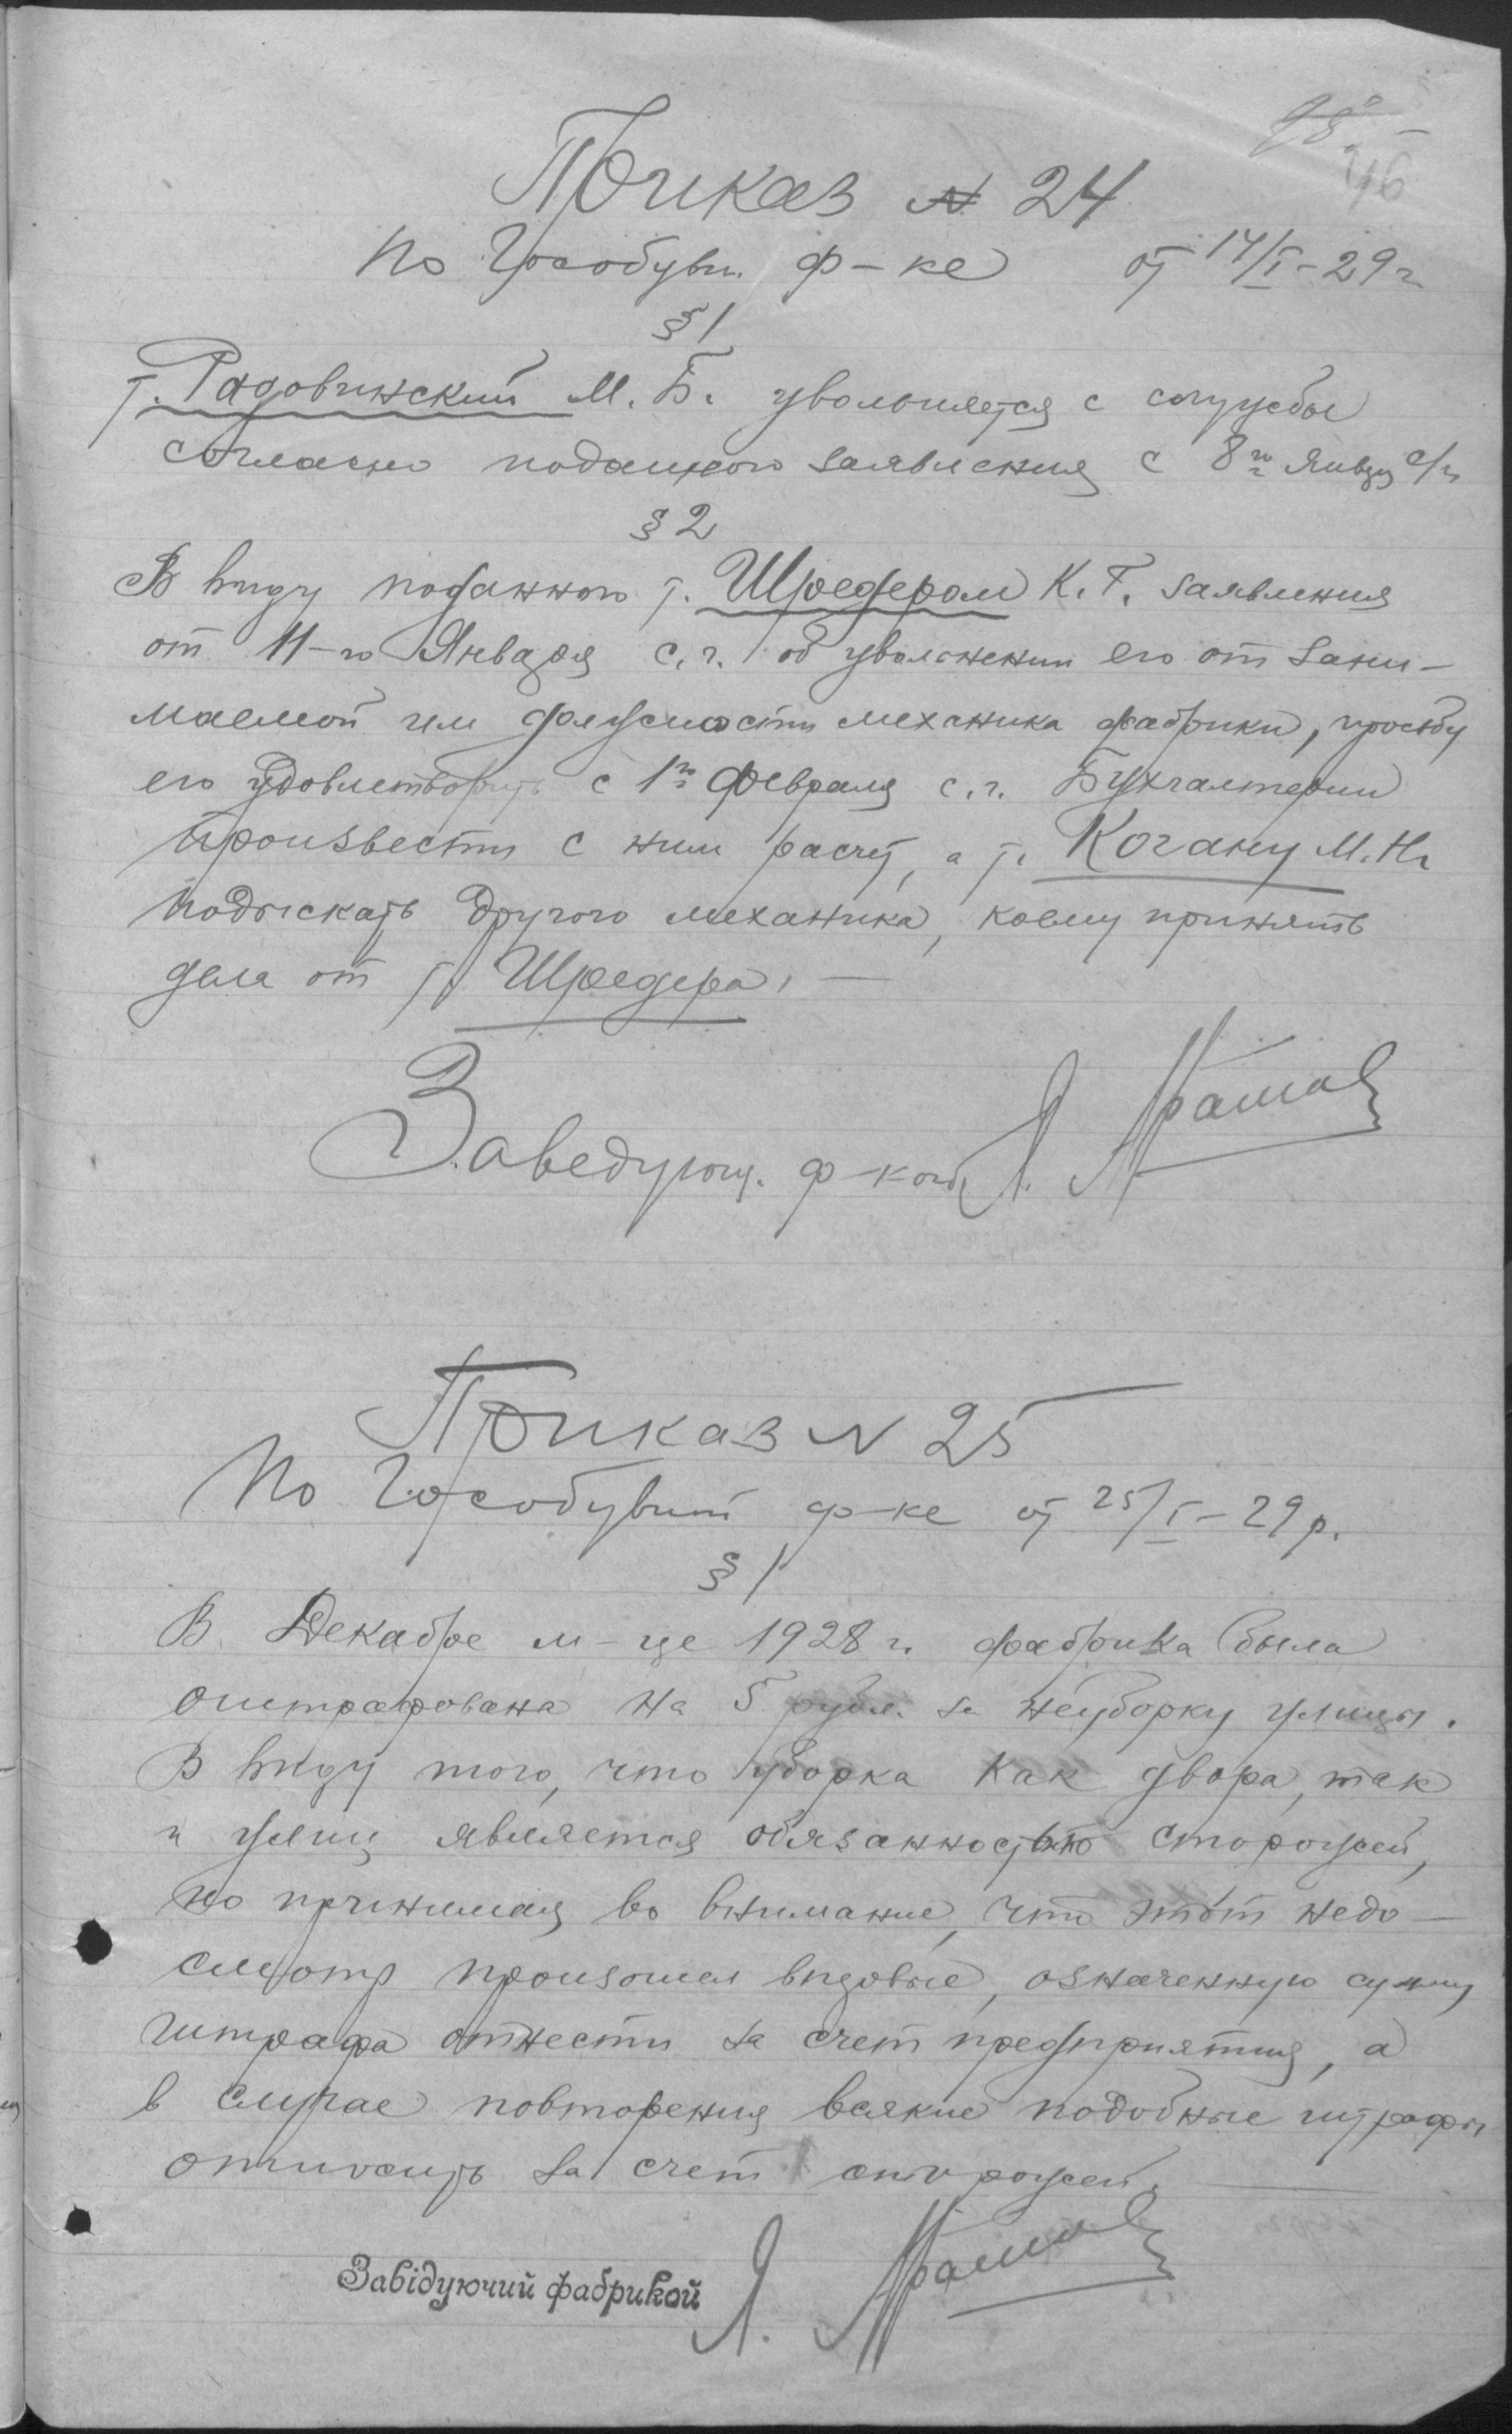 98
46
Приказ № 24
по Гособувн. ф-ке от 14/I-29 г.
§ 1
т. Радовинский М. Б. увольняется с службы
согласно поданного заявления с 8го Января с/г
§ 2
В виду поданного т. Шредером К. Г. заявления
от 11-го Января с. г. об увольнении его от зани-
маемой им должности механика фабрики, просьбу
его удовлетворить с 1го Февраля с. г. Бухгалтерии
произвести с ним расчет, а т. Когану М. Н.
подыскать другого механика, коему принять
дела от т. Шредера. —
Заведующ. ф-кой Я.
Приказ N 25
По Гособувной ф-ке от 25/I-29 р.
§ 1
В Декабре м-це 1928 г. фабрика была
оштрафована на 5 рубл. за неуборку улицы.
В виду того, что уборка как двора, так
и улиц является обязанностью сторожей,
но принимая во внимание, что этот недо-
смотр произошел впервые, означенную сумму
штрафа отнести за счет предприятия, а
в случае повторения всякие подобные штрафы
относить за счет сторожей.
Завідуючий фабрикой Я.